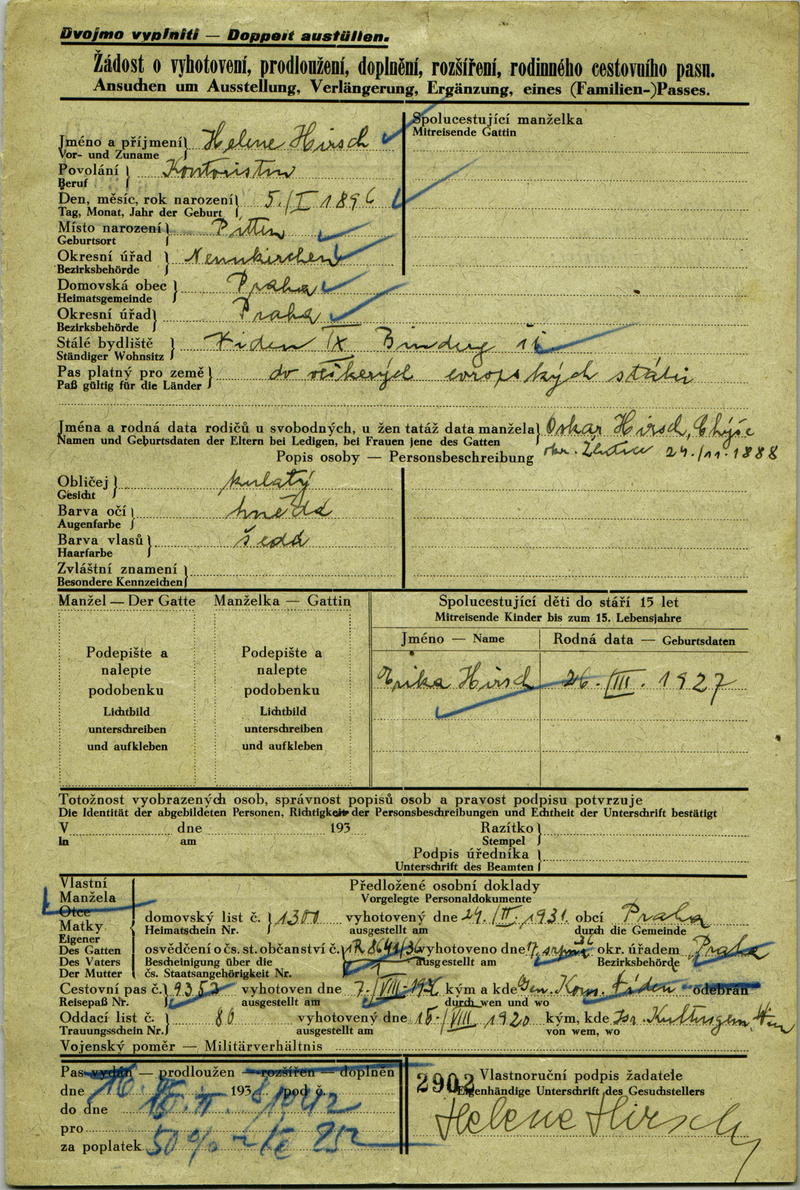 Dvojmo vyplniti — Doppelt ausfüllen.
Žádost o vyhotovení, prodloužení, doplnění, rozšíření, rodinného cestovního pasu.
Ansuchen um Ausstellung, Verlängerung, Ergänzung, eines (Familien-)Passes.
Jméno a příjmení Helene Hirsch
Vor- und Zuname
Spolucestující manželka
Mitreisende Gattin
Povolání Kontoristin
Beruf
Den, měsíc, rok narození 5./I 1896
Tag, Monat, Jahr der Geburt
Místo narození Pitten
Geburtsort
Okresní úřad Neunkirchen
Bezirksbehörde
Domovská obec Praha
Heimatsgemeinde
Okresní úřad Praha
Bezirksbehörde
Stálé bydliště IX
Ständiger Wohnsitz
Pas platný pro země do evropských států
Paß gültig für die Länder
Jména a rodná data rodičů u svobodných, u žen tatáž data manžela Oskar Hirsch, Chyše
Namen und Geburtsdaten der Eltern bei Ledigen, bei Frauen jene des Gatten okr. Žlutice 24./11.1888
Popis osoby — Personsbeschreibung
Obličej kulatý
Gesicht
Barva očí hnědá
Augenfarbe
Barva vlasů šedá
Haarfarbe
Zvláštní znamení
Besondere Kennzeichen
Manžel — Der Gatte
Manželka — Gattin
Spolucestující děti do stáří 15 let
Mitreisende Kinder bis zum 15. Lebensjahre
Jméno — Name
Rodná data — Geburtsdaten
Podepište a
nalepte
podobenku
Lichtbild
unterschreiben
und aufkleben
Podepište a
nalepte
podobenku
Lichtbild
unterschreiben
und aufkleben
Erika Hirsch 26./III. 1927
Totožnost vyobrazených osob, správnost popisů osob a pravost podpisu potvrzuje
Die Identität der abgebildeten Personen, Richtigkeit der Personsbeschreibungen und Echtheit der Unterschrift bestätigt
V dne 193 Razítko
In am Stempel
Podpis úředníka
Unterschrift des Beamten
Vlastní
Manžela
Otce
Matky
Eigener
Des Gatten
Des Vaters
Der Mutter
Předložené osobní doklady
Vorgelegte Personaldokumente
domovský list č. 1300 vyhotovený dne 1931 obcí Praha
Heimatschein Nr. ausgestellt am durch die Gemeinde
osvědčení o čs. st. občanství č. vyhotoveno dne 7. srpna 36 okr. úřadem Praha
Bescheinigung über die ausgestellt am Bezirksbehörde
čs. Staatsangehörigkeit Nr.
Cestovní pas č. vyhotoven dne 7./VIII. kým a kde Gen. Kons. odebrán
Reisepaß Nr. ausgestellt am durch wen und wo
Oddací list č. 80 vyhotovený dne 15./VIII 1920 kým, kde Isr. Kultusgem. Wien
Trauungsschein Nr. ausgestellt am von wem, wo
Vojenský poměr — Militärverhältnis
Pas vydán — prodloužen — rozšířen — doplněn
dne 193 pod č.
do dne 1942
pro
za poplatek 50
2902
Vlastnoruční podpis žadatele
Eigenhändige Unterschrift des Gesuchstellers
Helene Hirsch